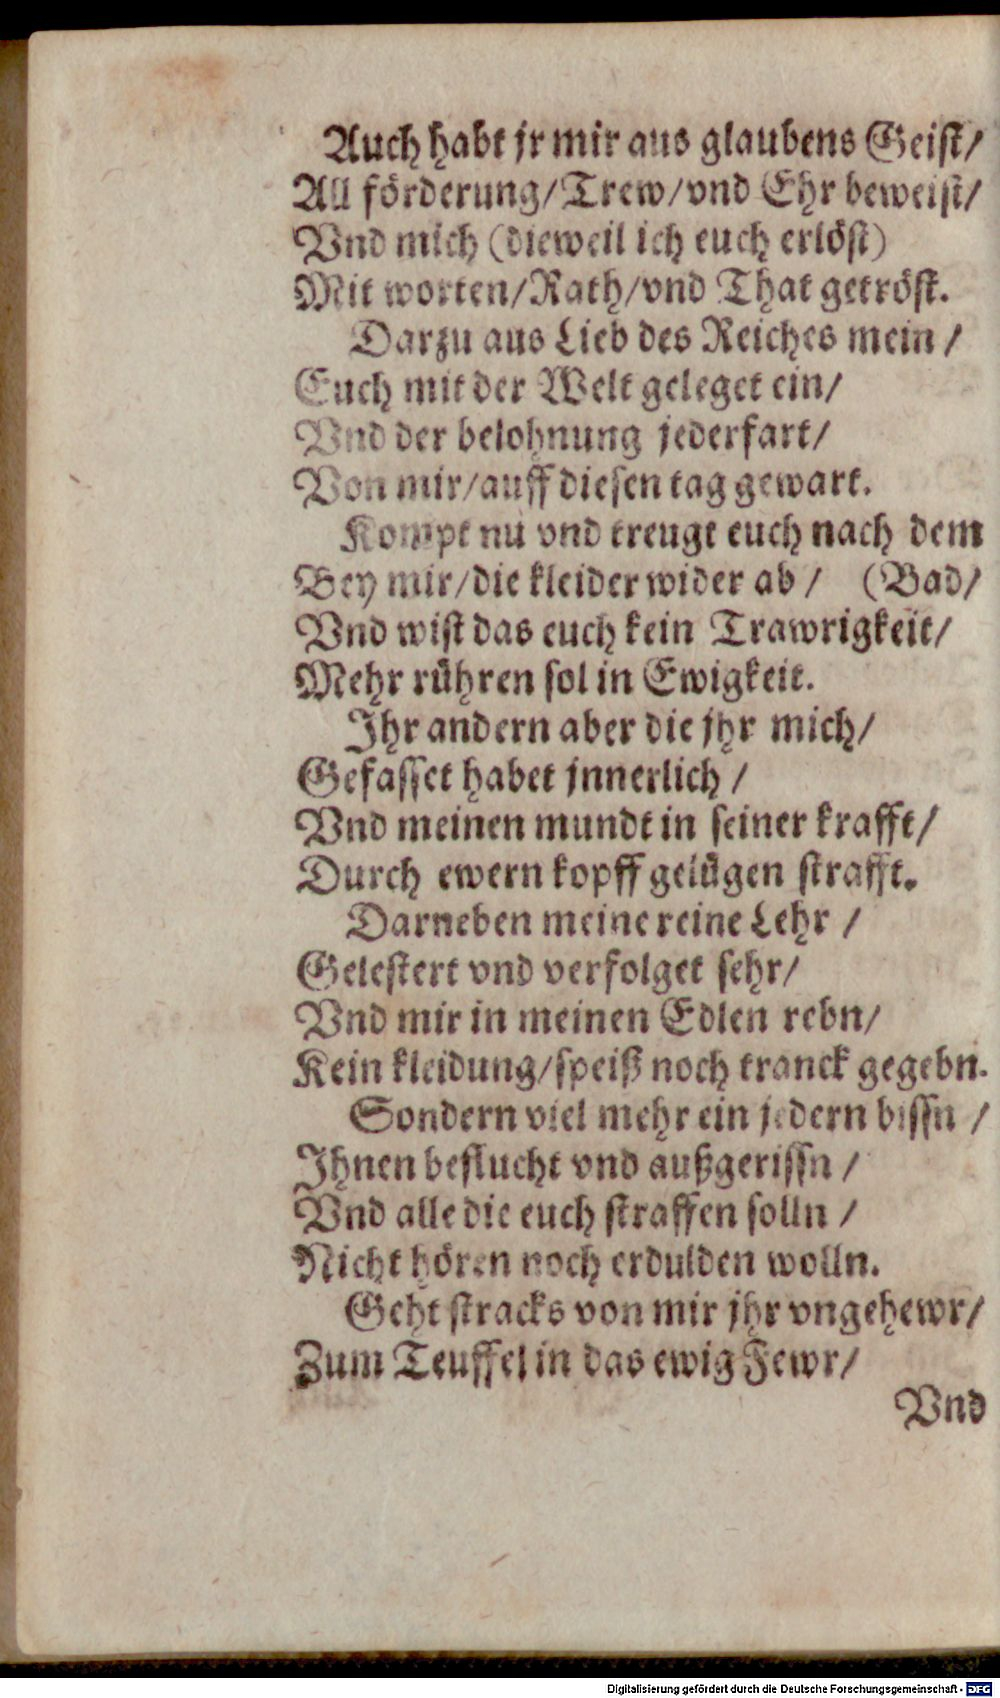 Auch habt jr mir aus glaubens Geist/
All förderung/Trew/vnd Ehr beweist/
Vnd mich (dieweil ich euch erlöst)
Mit worten/Rath/vnd That getröst.
Darzu aus Lieb des Reiches mein /
Euch mit der Welt geleget ein/
Vnd der belohnung jederfart/
Von mir/auff diesen tag gewart.
Kompt nu vnd treugt euch nach dem
Bey mir/die kleider wider ab / (Bad/
Vnd wist das euch kein Trawrigkeit/
Mehr rühren sol in Ewigkeit.
Ihr andern aber die jhr mich/
Gefasset habet jnnerlich /
Vnd meinen mundt in seiner krafft/
Durch ewern kopff gelügen strafft.
Darneben meine reine Lehr /
Gelestert vnd verfolget sehr/
Vnd mir in meinen Edlen rebn/
Kein kleidung/speiß noch tranck gegebn.
Sondern viel mehr ein jedern bissn /
Ihnen beflucht vnd außgerissn /
Vnd alle die euch straffen solln /
Nicht hören noch erdulden wolln.
Geht stracks von mir jhr vngehewr/
Zum Teuffel in das ewig Fewr/
Vnd
Digitalisierung gefördert durch die Deutsche Forschungsgemeinschaft - DFG